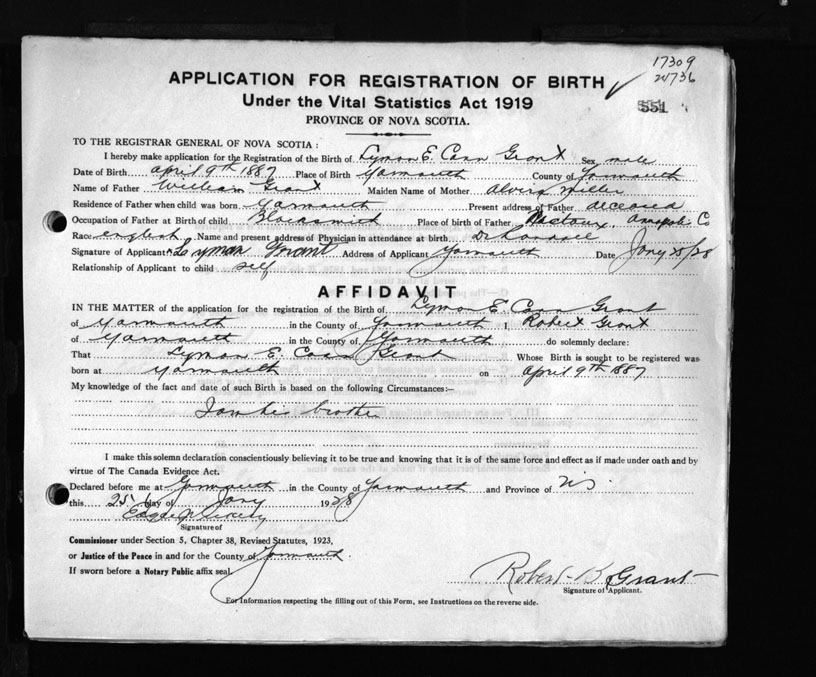 17309
24736
551
APPLICATION FOR REGISTRATION OF BIRTH
Under the Vital Statistics Act 1919
PROVINCE OF NOVA SCOTIA.
TO THE REGISTRAR GENERAL OF NOVA SCOTIA:
I hereby make application for the Registration of the Birth of Lyman E. Cann Grant Sex male
Date of Birth april 9th 1887 Place of Birth Yarmouth County of Yarmouth
Name of Father William Grant Maiden Name of Mother alvira Miller
Residence of Father when child was born Yarmouth Present address of Father deceased
Occupation of Father at Birth of child Blacksmith Place of birth of Father Annapolis Co
Race english Name and present address of Physician in attendance at birth Dr
Signature of Applicant Lyman Grant Address of Applicant Yarmouth Date Jany 25/28
Relationship of Applicant to child self
AFFIDAVIT
IN THE MATTER of the application for the registration of the Birth of Lyman E. Cann Grant
of Yarmouth in the County of Yarmouth I, Robert Grant
of Yarmouth in the County of Yarmouth do solemnly declare:
That Lyman E. Cann Grant Whose Birth is sought to be registered was
born at Yarmouth on april 9th 1887
My knowledge of the fact and date of such Birth is based on the following Circumstances:—
I am his brother
I make this solemn declaration conscientiously believing it to be true and knowing that it is of the same force and effect as if made under oath and by
virtue of The Canada Evidence Act.
Declared before me at Yarmouth in the County of Yarmouth and Province of N.S.
this 25 day of Jany 1928
Signature of
Commissioner under Section 5, Chapter 38, Revised Statutes, 1923,
or Justice of the Peace in and for the County of Yarmouth.
If sworn before a Notary Public affix seal.
Robert B Grant
Signature of Applicant.
For Information respecting the filling out of this Form, see Instructions on the reverse side.